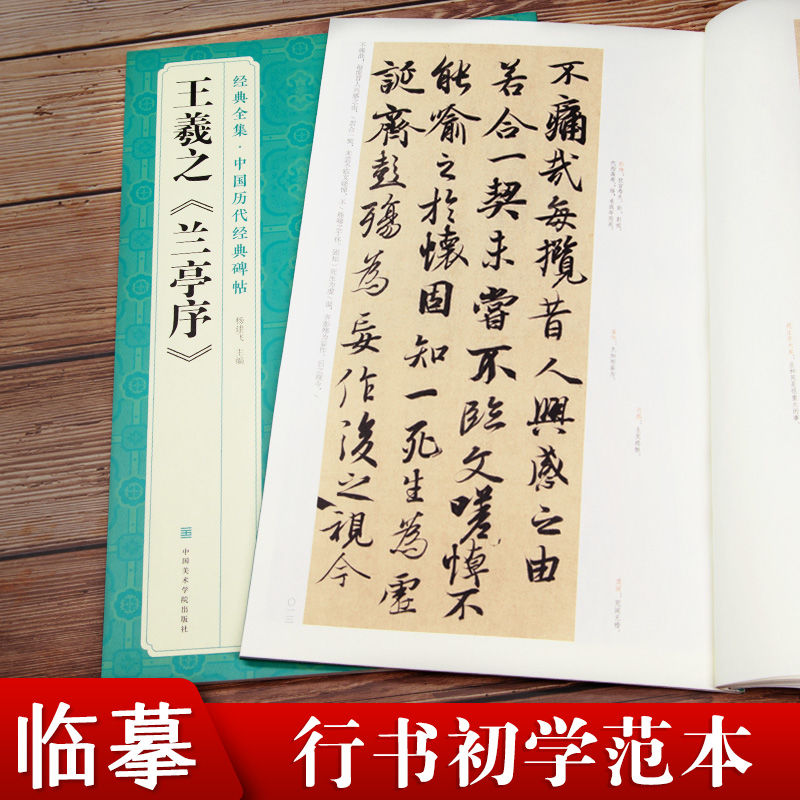 经典全集·中国历代经典碑帖
王羲之《兰亭序》
杨建飞 主编
中国美术学院出版社
不痛哉每攬昔人興感之由
若合一契未嘗不臨文嗟悼不
能喻之於懷固知一死生為虛
誕齊彭殤為妄作後之視今
〇一三
临摹
行书初学范本